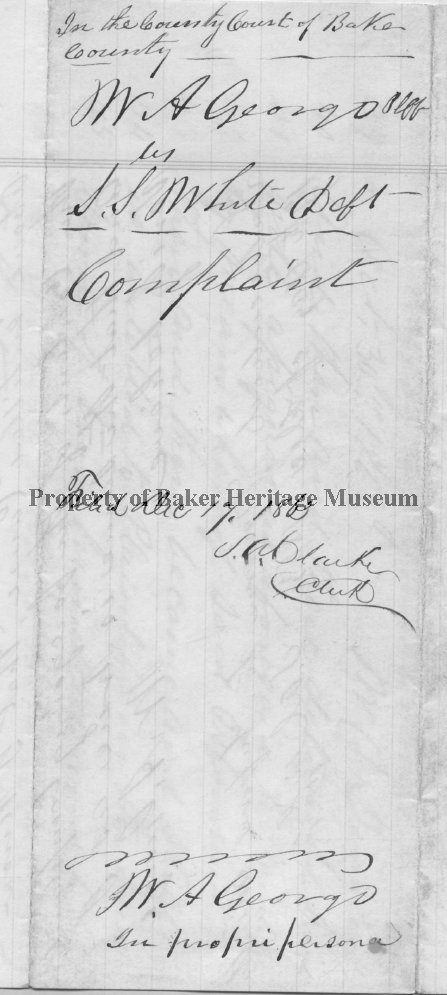 In the County Court of Baker
County
W A George Plff
vs
S. S. White Deft
Complaint
Property of Baker Heritage Museum
Filed Dec 17, 1863
S. A. Clarke
Clerk
W A George
In propri persona